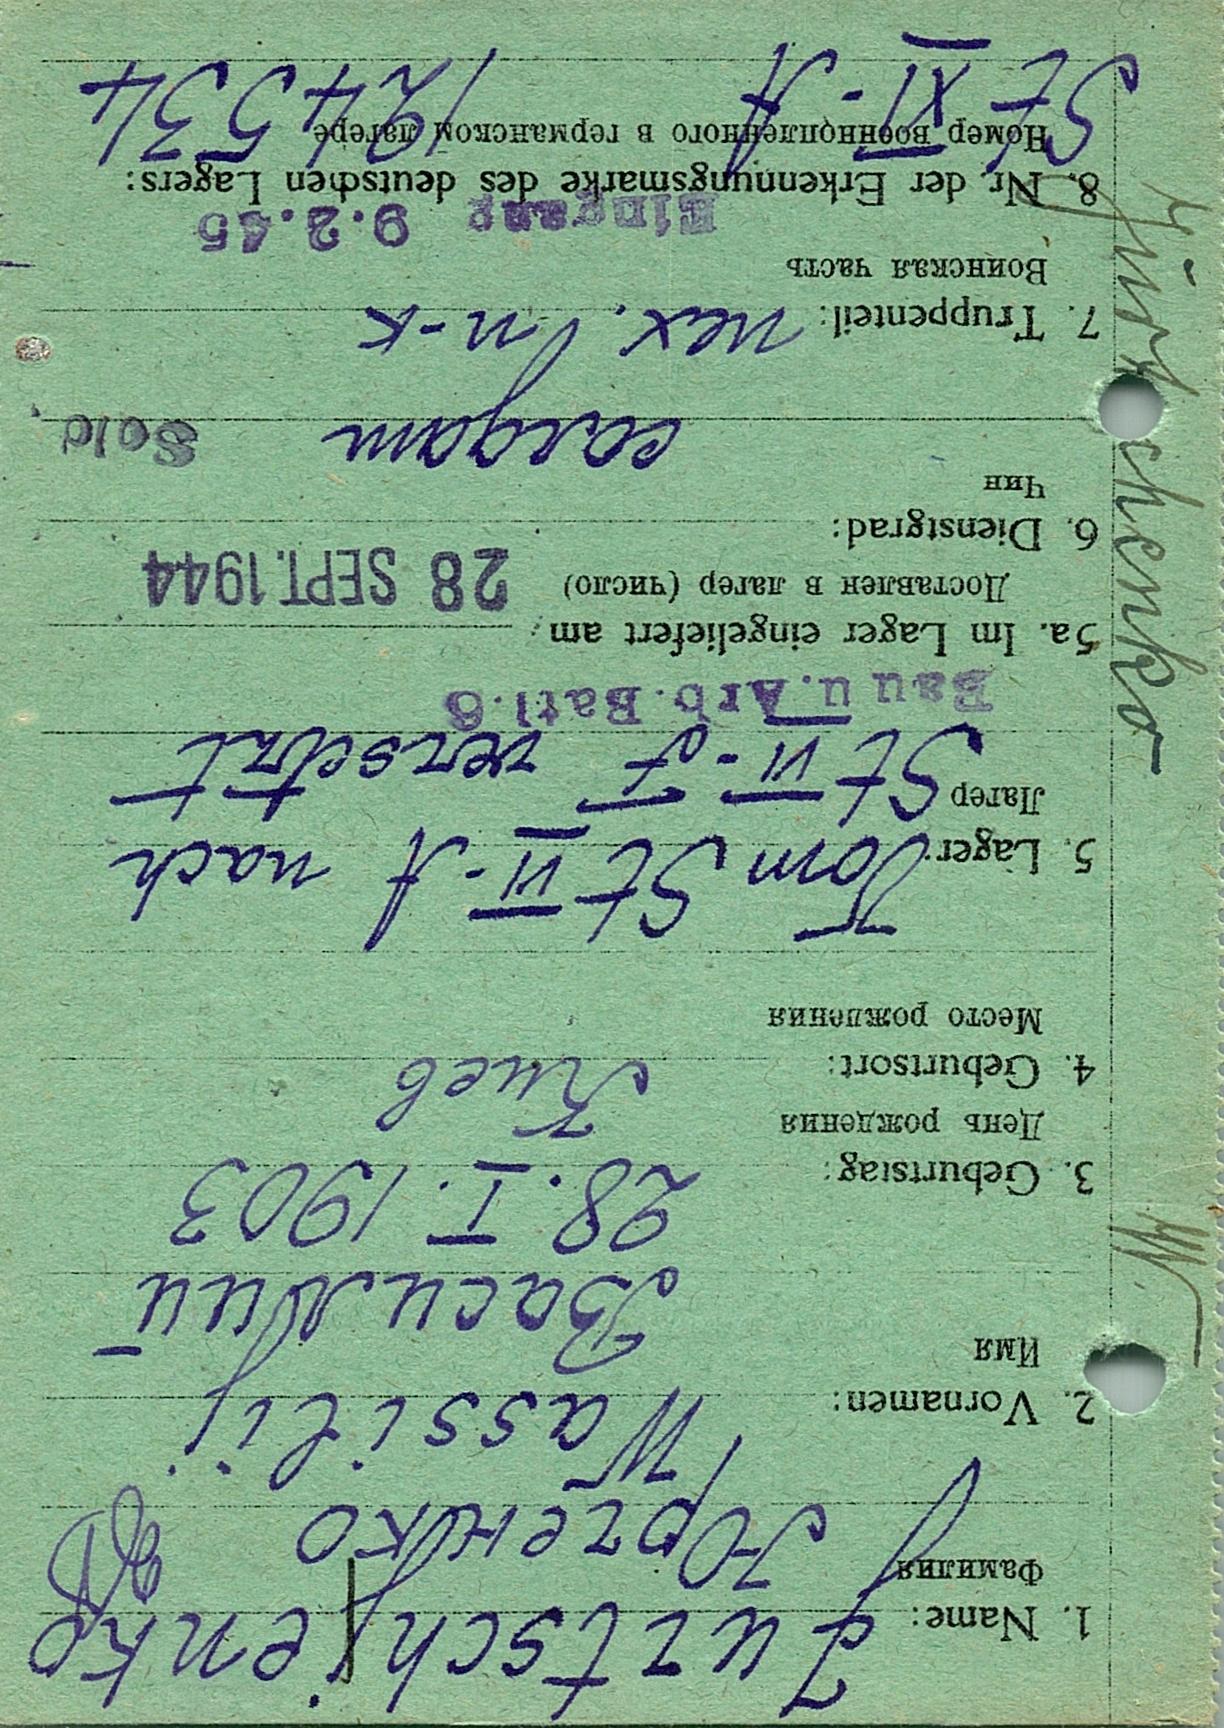 1. Name: Jurtschenko
Фамилия Юрченко
2. Vornamen: Wassilij
Имя Василий
3. Geburtstag: 28. I. 1903
День рождения
4. Geburtsort: Киев
Место рождения
5. Lager: Vom St VI-A nach
Лагер St VI-F versetzt
Bau u. Arb. Batl. 6
5a. Im Lager eingeliefert am
Доставлен в лагер (число) 28 SEPT. 1944
6. Dienstgrad:
Чин солдат Sold
7. Truppenteil: п-к
Воинская часть
Eingang 9.2.45
8. Nr. der Erkennungsmarke des deutschen Lagers:
Номер военнопленного в германском лагере
St XI-A 124534
W.